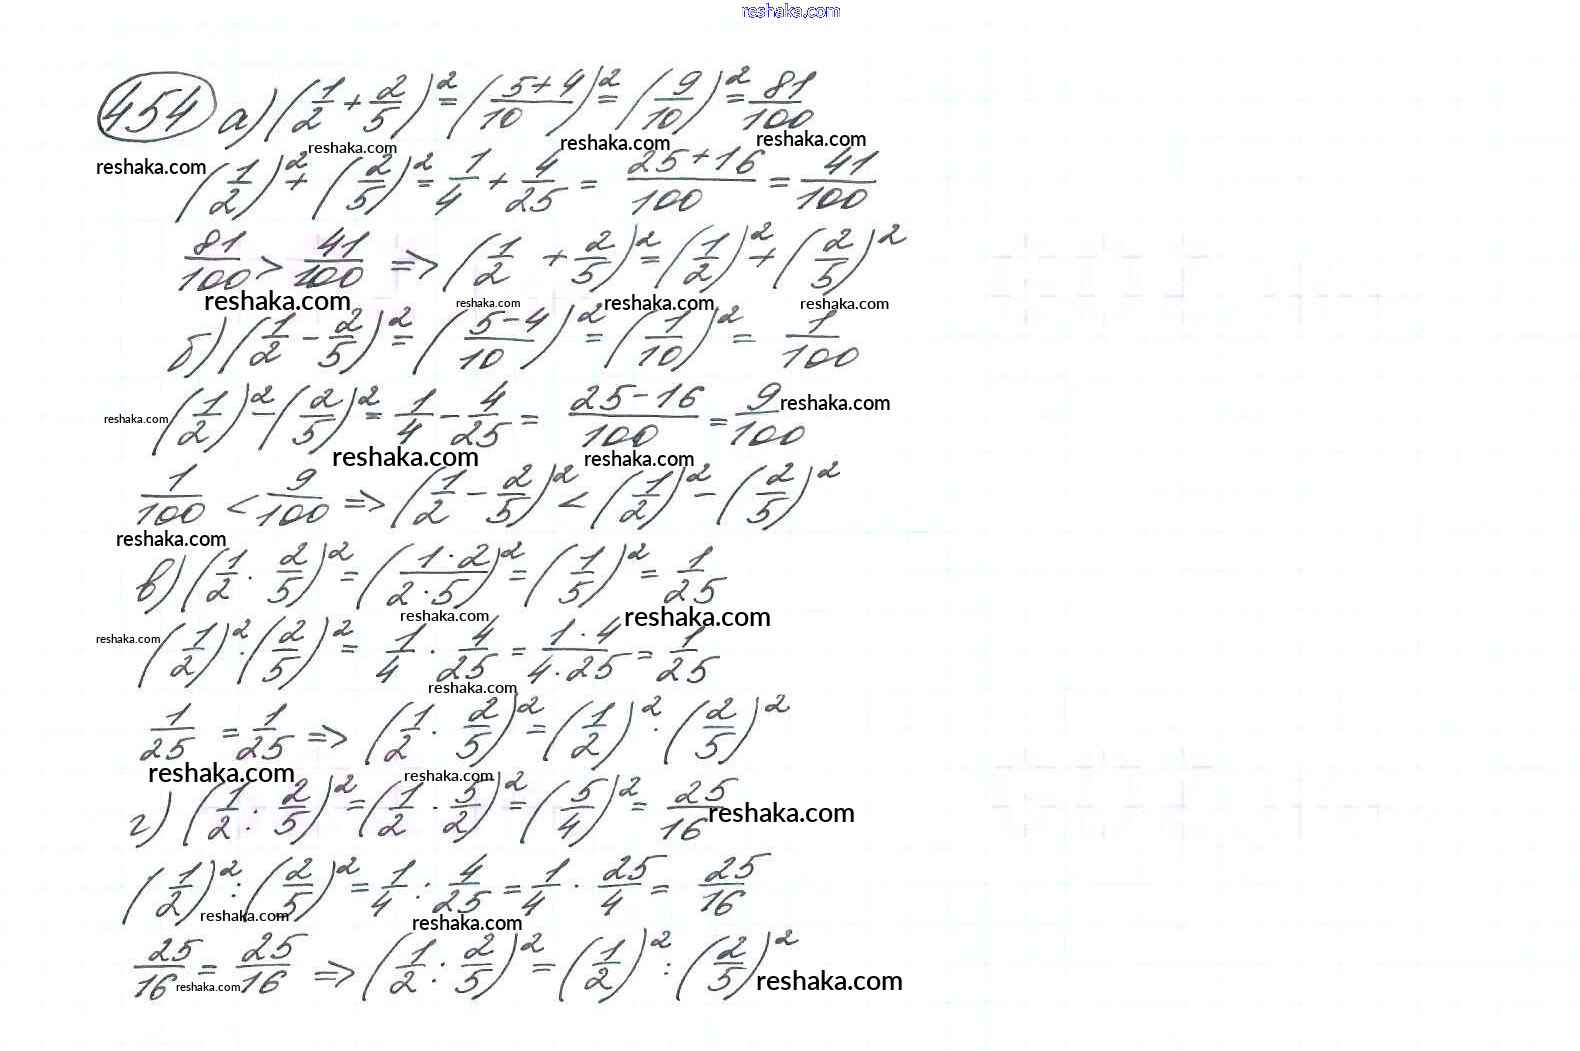 reshaka.com
454 а) (1/2 + 2/5)² = ((5+4)/10)² = (9/10)² = 81/100
reshaka.com reshaka.com reshaka.com reshaka.com
(1/2)² + (2/5)² = 1/4 + 4/25 = (25+16)/100 = 41/100
81/100 > 41/100 => (1/2 + 2/5)² = (1/2)² + (2/5)²
reshaka.com reshaka.com reshaka.com reshaka.com
б) (1/2 - 2/5)² = ((5-4)/10)² = (1/10)² = 1/100
reshaka.com (1/2)² - (2/5)² = 1/4 - 4/25 = (25-16)/100 = 9/100 reshaka.com
reshaka.com reshaka.com
1/100 < 9/100 => (1/2 - 2/5)² < (1/2)² - (2/5)²
reshaka.com
в) (1/2 · 2/5)² = ((1·2)/(2·5))² = (1/5)² = 1/25
reshaka.com reshaka.com
reshaka.com (1/2)² · (2/5)² = 1/4 · 4/25 = (1·4)/(4·25) = 1/25
reshaka.com
1/25 = 1/25 => (1/2 · 2/5)² = (1/2)² · (2/5)²
reshaka.com reshaka.com
г) (1/2 : 2/5)² = (1/2 · 5/2)² = (5/4)² = 25/16 reshaka.com
(1/2)² : (2/5)² = 1/4 : 4/25 = 1/4 · 25/4 = 25/16
reshaka.com reshaka.com
25/16 = 25/16 => (1/2 : 2/5)² = (1/2)² : (2/5)² reshaka.com
reshaka.com